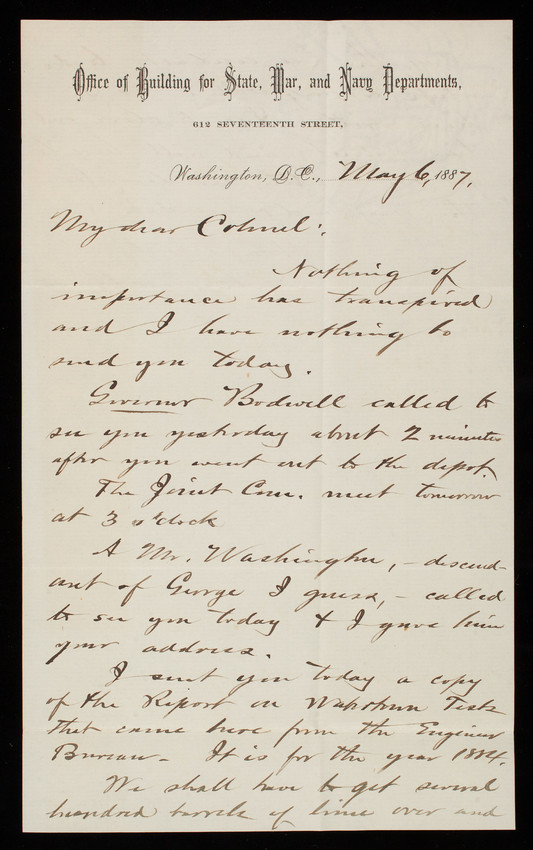 Office of Building for State, War, and Navy Departments,
612 SEVENTEENTH STREET,
Washington, D.C., May 6, 1887.
My dear Colonel:
Nothing of
importance has transpired
and I have nothing to
send you today.
Governor Bodwell called to
see you yesterday about 2 minutes
after you went out to the depot.
The Joint Com. meet tomorrow
at 3 o'clock
A Mr. Washington, - descend-
ant of George I guess, - called
to see you today & I gave him
your address.
I sent you today a copy
of the Report on Watertown Tests
that came here from the Engineer
Bureau - It is for the year 1884.
We shall have to get several
hundred barrels of lime over and